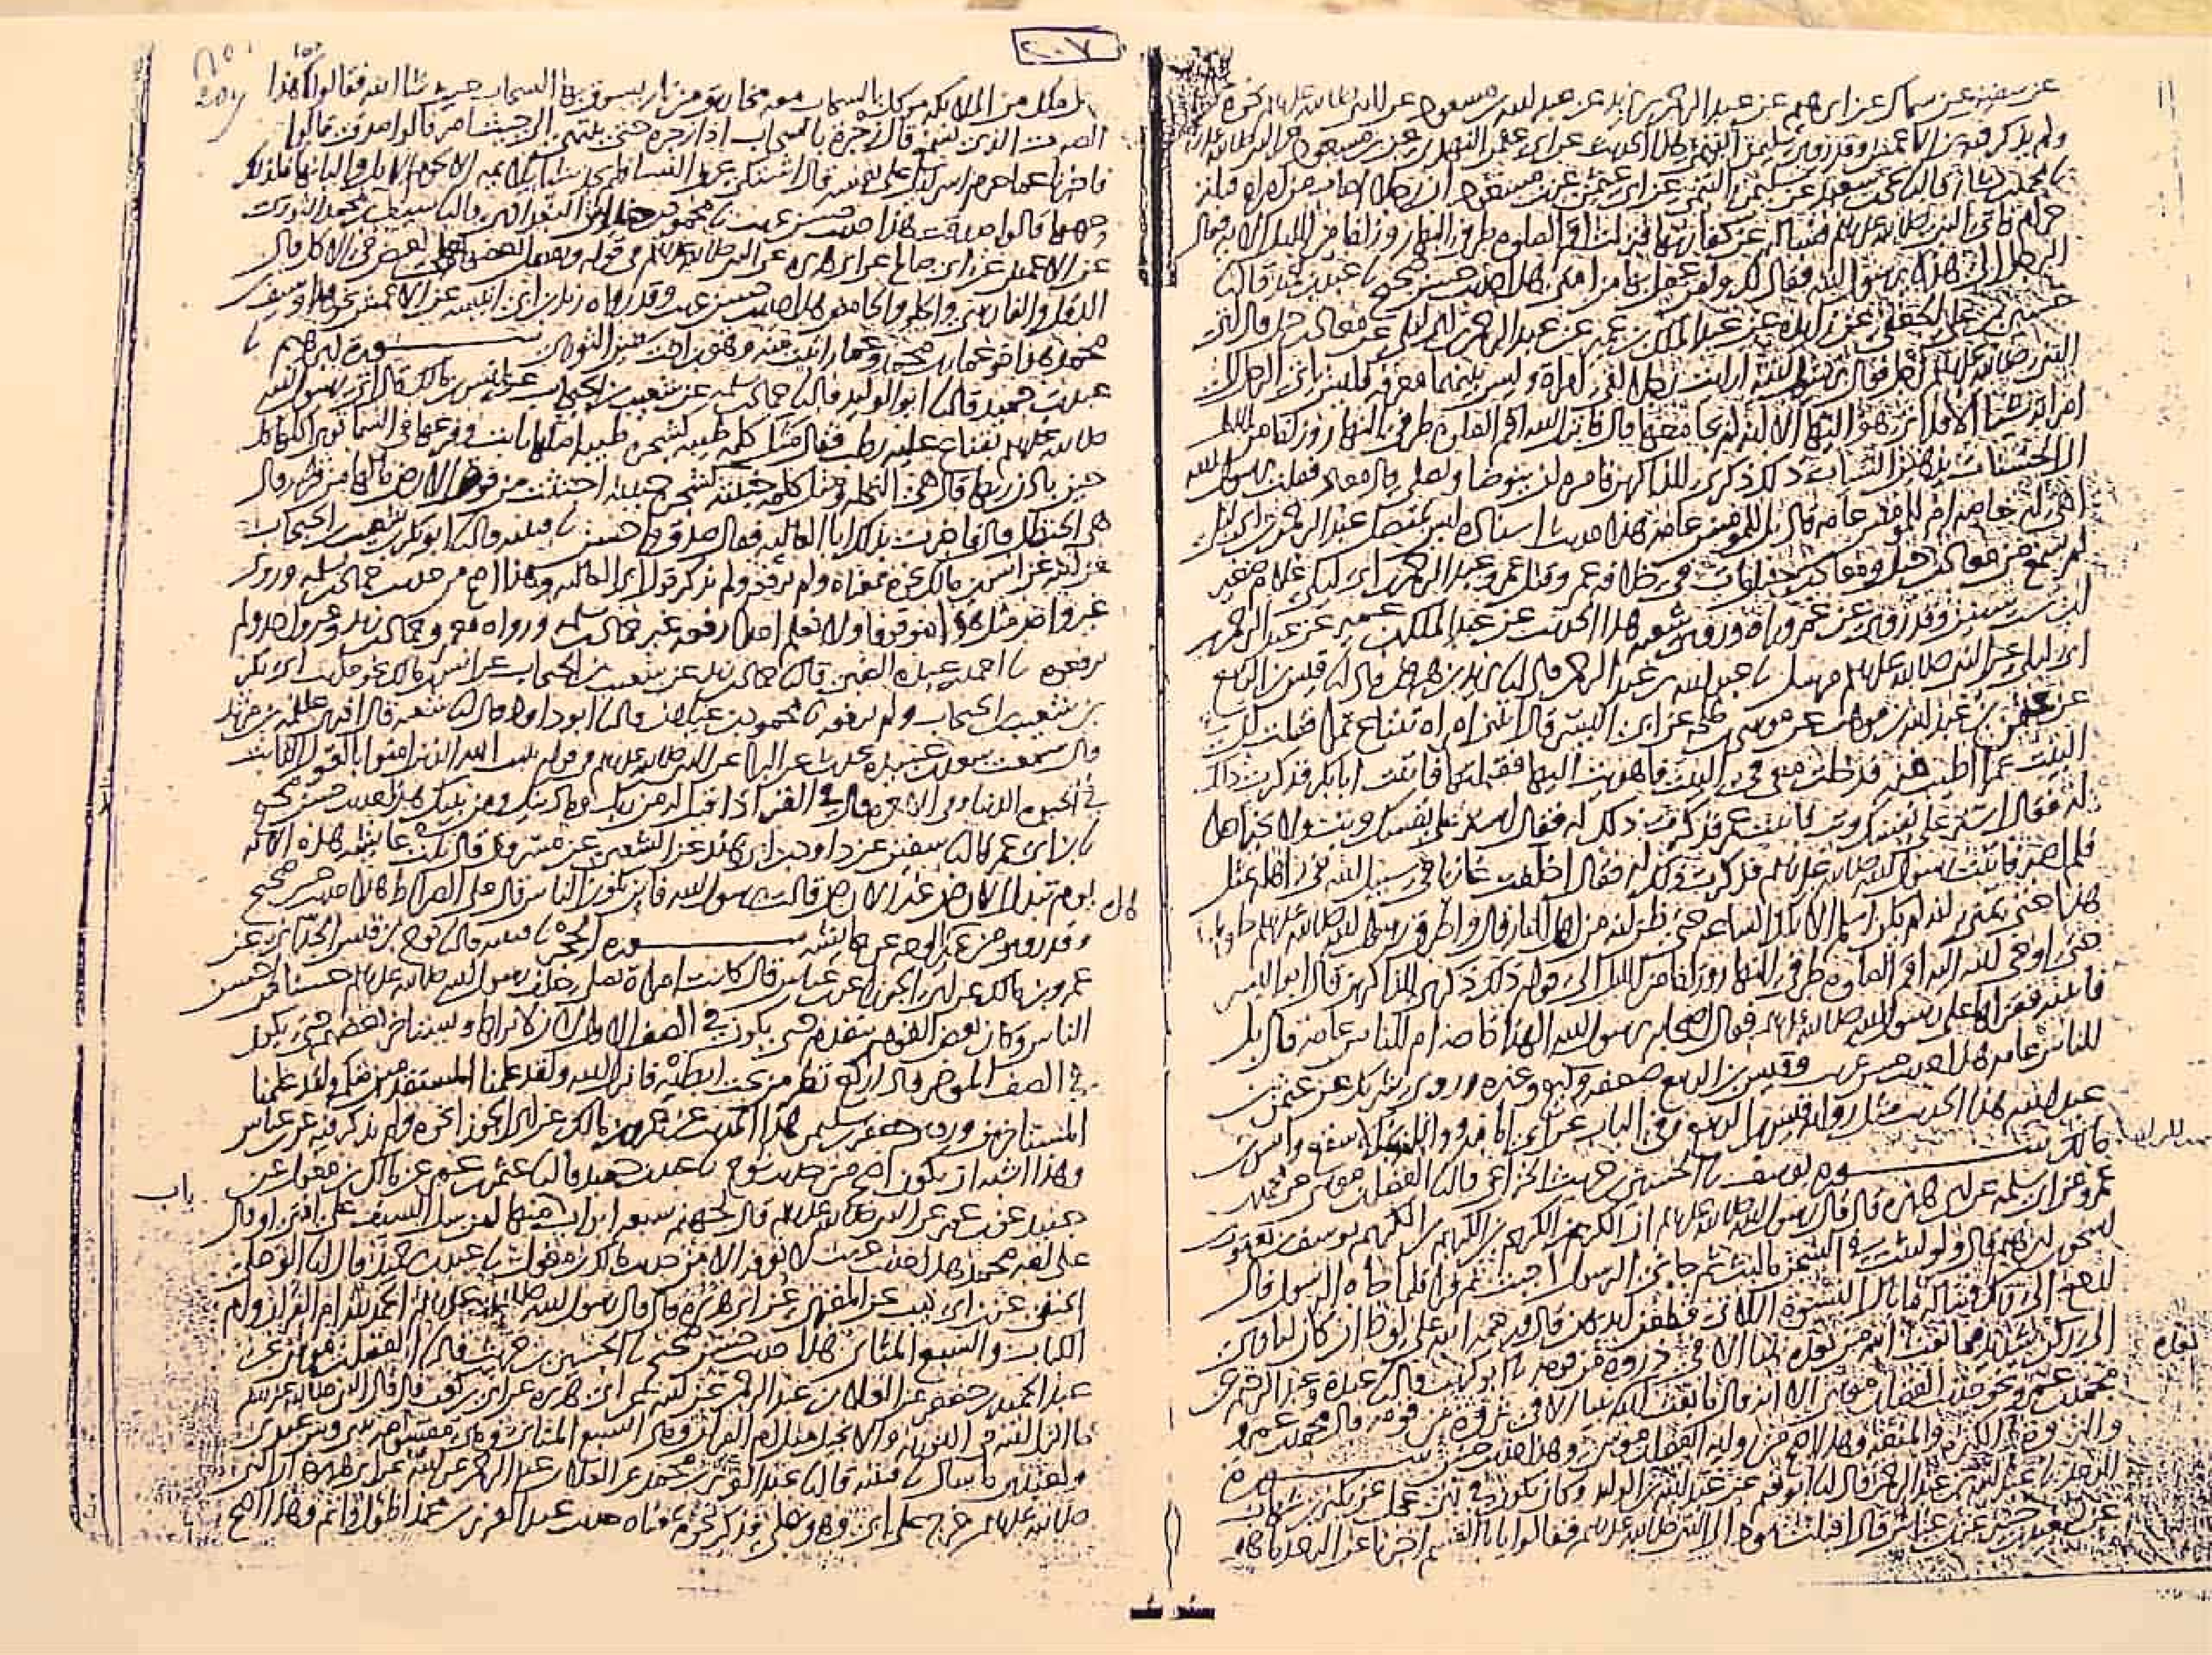 عن سفين عن سماك عن ابرهيم عن عبد الرحمن بن يزيد عن عبد الله بن مسعود عن النبي صلى الله عليه وسلم نحوه
ولم يذكر فيه الاعمش وقد روى سليمن التيمي هذا الحديث عن ابي عثمن النهدي عن ابن مسعود عن النبي صلى الله عليه
نا محمد بن بشار قال نا يحيى بن سعيد عن سليمن التيمي عن ابي عثمن عن ابن مسعود ان رجلا اصاب من امراه قبله
حرام فاتى النبي صلى الله عليه وسلم فساله عن كفارتها فنزلت اقم الصلوة طرفي النهار وزلفا من الليل الايه فقال
الرجل الي هذه يا رسول الله فقال لك ولمن عمل بها من امتي هذا حديث حسن صحيح نا عبد بن حميد قال نا
حسين بن علي الجعفي عن زايده عن عبد الملك بن عمير عن عبد الرحمن بن ابي ليلى عن معاذ بن جبل قال اتى
النبي صلى الله عليه وسلم رجل فقال يا رسول الله ارايت رجلا لقي امراة وليس بينهما معرفه فليس ياتي الرجل الى
امراته شيئا الا قد اتى هو اليها الا انه لم يجامعها قال فانزل الله اقم الصلوة طرفي النهار وزلفا من الليل
ان الحسنات يذهبن السيات ذلك ذكرى للذاكرين فامره ان يتوضا ويصلي قال معاذ فقلت يا رسول الله
اهي له خاصه ام للمومنين عامه قال بل للمومنين عامه هذا حديث ليس اسناده بمتصل عبد الرحمن بن ابي ليلى
لم يسمع من معاذ بن جبل ومعاذ بن جبل مات في خلافه عمر وقتل عمر وعبد الرحمن بن ابي ليلى غلام صغير
ابن ست سنين وقد روى عن عمر وراه وروى شعبه هذا الحديث عن عبد الملك بن عمير عن عبد الرحمن بن
ابي ليلى عن النبي صلى الله عليه وسلم مرسل نا عبد الله بن عبد الرحمن قال نا يزيد بن هرون قال نا قيس بن الربيع
عن عثمن بن عبد الله بن موهب عن موسى بن طلحه عن ابي اليسر قال اتتني امراه تبتاع تمرا فقلت ان
البيت تمرا اطيب منه فدخلت معي في البيت فاهويت اليها فقبلتها فاتيت ابا بكر فذكرت ذلك
له فقال استر على نفسك وتب فاتيت عمر فذكرت ذلك له فقال استر على نفسك وتب ولا تخبر احدا
فلم اصبر فاتيت رسول الله صلى الله عليه وسلم فذكرت ذلك له فقال اخلفت غازيا في سبيل الله في اهله بمثل
هذا حتى تمنى انه لم يكن اسلم الا تلك الساعه حتى ظن انه من اهل النار قال واطرق رسول الله صلى الله عليه وسلم طويلا
حتى اوحى الله اليه اقم الصلوة طرفي النهار وزلفا من الليل الى قوله ذلك ذكرى للذاكرين قال ابو اليسر
فاتيته فقراها علي رسول الله صلى الله عليه وسلم فقال اصحابه يا رسول الله الهذا خاصه ام للناس عامه قال بل
للناس عامه هذا حديث حسن غريب وقيس بن الربيع ضعفه وكيع وغيره وروى شريك عن عثمن بن
عبد الله هذا الحديث مثل رواية قيس بن الربيع وفي الباب عن ابي امامه وواثله بن الاسقع وانس بن
مالك سورة يوسف نا الحسين بن حريث الخزاعي قال نا الفضل بن موسى عن محمد بن
عمرو عن ابي سلمه عن ابي هريره قال قال رسول الله صلى الله عليه وسلم ان الكريم بن الكريم بن الكريم بن الكريم يوسف بن يعقوب بن
اسحق بن ابرهيم قال ولو لبثت في السجن ما لبث ثم جاني الرسول اجبت ثم قرا فلما جاه الرسول قال
ارجع الى ربك فسئله ما بال النسوة اللاتي قطعن ايديهن قال ورحمه الله على لوط ان كان لياوي
الى ركن شديد فما بعث الله من بعده نبيا الا في ذروه من قومه نا ابو كريب قال نا عبدة وعبد الرحيم عن
محمد بن عمرو نحو حديث الفضل بن موسى الا انه قال ما بعث الله بعده نبيا الا في ثروة من قومه قال محمد بن عمرو
والثروة الكثرة والمنعة وهذا اصح من رواية الفضل بن موسى وهذا حديث حسن سورة
الرعد نا عبد الله بن عبد الرحمن قال نا ابو نعيم عن عبد الله بن الوليد وكان يكون في بني عجل عن بكير بن شهاب
عن سعيد بن جبير عن ابن عباس قال اقبلت يهود الى النبي صلى الله عليه وسلم فقالوا يا ابا القسم اخبرنا عن الرعد ما هو
بعده
٢٠٧
207
قال ملك من الملائكه موكل بالسحاب معه مخاريق من نار يسوق بها السحاب حيث شا الله فقالوا فما هذا
الصوت الذي نسمع قال زجره بالسحاب اذا زجره حتى ينتهي الى حيث امر قالوا صدقت قالوا
فاخبرنا عما حرم اسرائيل على نفسه قال اشتكى عرق النسا فلم يجد شيئا يلائمه الا لحوم الابل والبانها فلذلك
حرمها قالوا صدقت هذا حديث حسن غريب نا محمود بن خداش البغدادي قال نا سيف بن محمد الثوري
عن الاعمش عن ابي صالح عن ابي هريره عن النبي صلى الله عليه وسلم في قوله ونفضل بعضها على بعض في الاكل قال
الدقل والفارسي والحلو والحامض هذا حديث حسن غريب وقد رواه زيد بن ابي انيسه عن الاعمش نحو هذا وسيف بن
محمد هذا اخو عمار بن محمد وعمار اثبت منه وهو بن اخت سفين الثوري سورة ابرهيم نا
عبد بن حميد قال نا ابو الوليد قال نا حماد بن سلمه عن شعيب بن الحبحاب عن انس بن مالك قال اتي رسول الله
صلى الله عليه وسلم بقناع عليه رطب فقال مثل كلمة طيبه كشجرة طيبه اصلها ثابت وفرعها في السما توتي اكلها كل
حين باذن ربها قال هي النخله ومثل كلمة خبيثه كشجرة خبيثه اجتثت من فوق الارض ما لها من قرار قال
هي الحنظل قال فاخبرت بذلك ابا العاليه فقال صدق واحسن نا قتيبه قال نا ابو بكر بن شعيب بن الحبحاب
عن ابيه عن انس بن مالك نحوه بمعناه ولم يرفعه ولم يذكر قول ابي العاليه وهذا اصح من حديث حماد بن سلمه وروى
غير واحد مثل هذا موقوفا ولا نعلم احدا رفعه غير حماد بن سلمه ورواه معمر وحماد بن زيد وغير واحد ولم
يرفعوه نا احمد بن عبدة الضبي قال نا حماد بن زيد عن شعيب بن الحبحاب عن انس بن مالك نحو حديث ابي بكر
بن شعيب بن الحبحاب ولم يرفعه نا محمود بن غيلان قال نا ابو داود قال نا شعبه قال اخبرني علقمه بن مرثد
قال سمعت سعد بن عبيدة يحدث عن البرا عن النبي صلى الله عليه وسلم في قوله يثبت الله الذين امنوا بالقول الثابت
في الحيوة الدنيا وفي الاخره قال في القبر اذا قيل له من ربك وما دينك ومن نبيك هذا حديث حسن صحيح
نا بن ابي عمر قال نا سفين عن داود بن ابي هند عن الشعبي عن مسروق قال تلت عايشه هذه الايه
يوم تبدل الارض غير الارض قالت يا رسول الله فاين يكون الناس قال على الصراط هذا حديث حسن صحيح
وقد روي من غير هذا الوجه عن عايشه سورة الحجر نا قتيبه قال نا نوح بن قيس الحداني عن
عمرو بن مالك عن ابي الجوزا عن ابن عباس قال كانت امراة تصلي خلف رسول الله صلى الله عليه وسلم حسنا من احسن
الناس وكان بعض القوم يتقدم حتى يكون في الصف الاول لان لا يراها ويستاخر بعضهم حتى يكون
في الصف الموخر فاذا ركع نظر من تحت ابطيه فانزل الله ولقد علمنا المستقدمين منكم ولقد علمنا
المستاخرين وروى جعفر بن سليمن هذا الحديث عن عمرو بن مالك عن ابي الجوزا نحوه ولم يذكر فيه عن ابن عباس
وهذا اشبه ان يكون اصح من حديث نوح نا عبد بن حميد قال نا عثمن بن عمر عن مالك بن مغول عن
جنيد عن ابن عمر عن النبي صلى الله عليه وسلم قال لجهنم سبعة ابواب باب منها لمن سل السيف على امتي او قال
على امة محمد هذا حديث غريب لا نعرفه الا من حديث مالك بن مغول نا عبد بن حميد قال نا ابو علي
الحنفي عن ابن ابي ذيب عن المقبري عن ابي هريره قال قال رسول الله صلى الله عليه وسلم الحمد لله ام القران وام
الكتاب والسبع المثاني هذا حديث حسن صحيح نا الحسين بن حريث قال نا الفضل بن موسى عن
عبد الحميد بن جعفر عن العلا بن عبد الرحمن عن ابيه عن ابي هريره عن ابي بن كعب قال قال النبي صلى الله عليه وسلم
ما انزل الله في التورية ولا الانجيل مثل ام القران وهي السبع المثاني وهي مقسومه بيني وبين عبدي
ولعبدي ما سال نا قتيبه قال نا عبد العزيز بن محمد عن العلا بن عبد الرحمن عن ابيه عن ابي هريره ان النبي
صلى الله عليه وسلم خرج على ابي وهو يصلي فذكر نحوه بمعناه حديث عبد العزيز بن محمد اطول واتم وهذا اصح
باب
قال